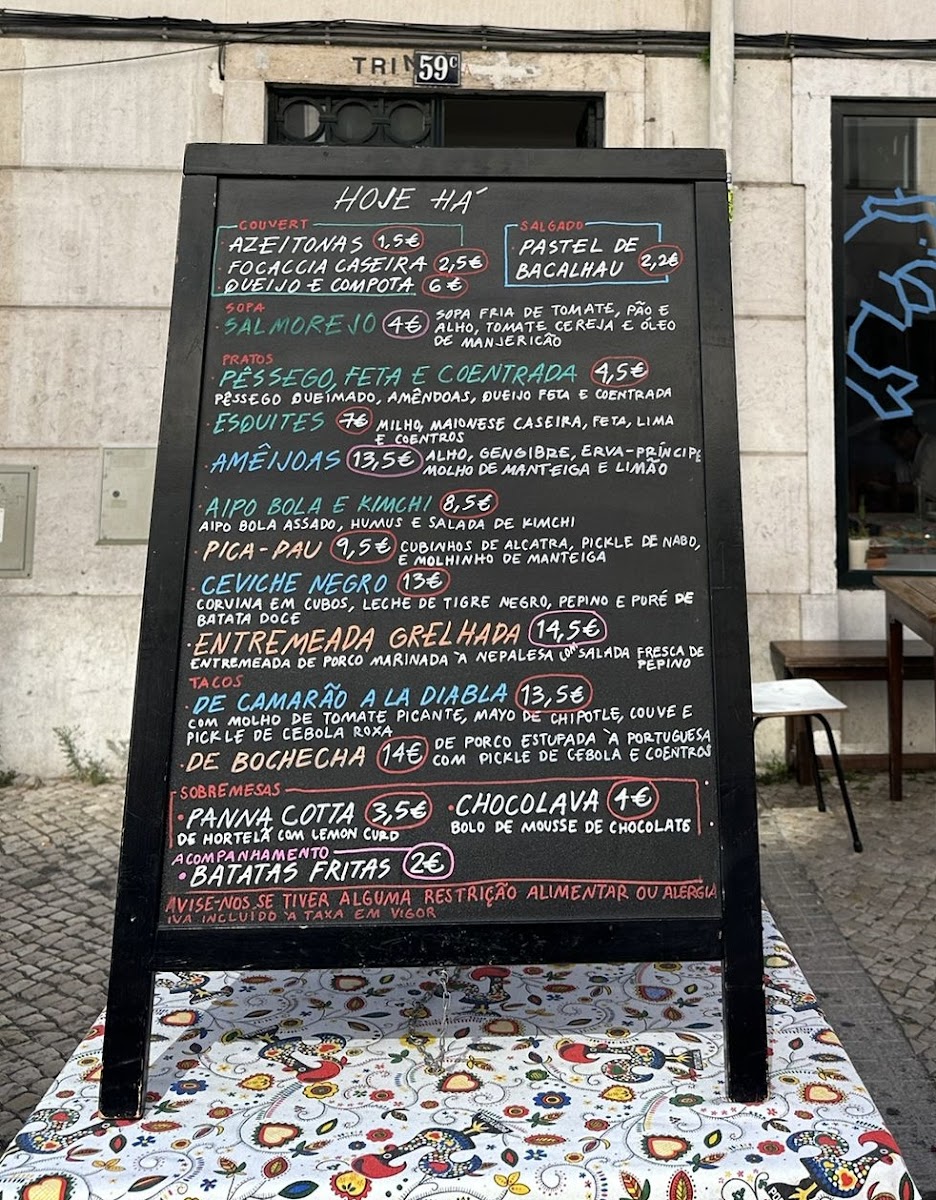 TRIN
59C
HOJE HÁ
COUVERT
AZEITONAS 1,5€
FOCACCIA CASEIRA 2,5€
QUEIJO E COMPOTA 6€
SALGADO
PASTEL DE
BACALHAU 2,2€
SOPA
SALMOREJO 4€
SOPA FRIA DE TOMATE, PÃO E
ALHO, TOMATE CEREJA E ÓLEO
DE MANJERICÃO
PRATOS
PÊSSEGO, FETA E COENTRADA 4,5€
PÊSSEGO QUEIMADO, AMÊNDOAS, QUEIJO FETA E COENTRADA
ESQUITES 7€
MILHO, MAIONESE CASEIRA, FETA, LIMA
E COENTROS
AMÊIJOAS 13,5€
ALHO, GENGIBRE, ERVA-PRÍNCIPE
MOLHO DE MANTEIGA E LIMÃO
AIPO BOLA E KIMCHI 8,5€
AIPO BOLA ASSADO, HUMUS E SALADA DE KIMCHI
PICA-PAU 9,5€
CUBINHOS DE ALCATRA, PICKLE DE NABO,
E MOLHINHO DE MANTEIGA
CEVICHE NEGRO 13€
CORVINA EM CUBOS, LECHE DE TIGRE NEGRO, PEPINO E PURÉ DE
BATATA DOCE
ENTREMEADA GRELHADA 14,5€
ENTREMEADA DE PORCO MARINADA À NEPALESA COM SALADA FRESCA DE
PEPINO
TACOS
DE CAMARÃO A LA DIABLA 13,5€
COM MOLHO DE TOMATE PICANTE, MAYO DE CHIPOTLE, COUVE E
PICKLE DE CEBOLA ROXA
DE BOCHECHA 14€
DE PORCO ESTUFADA À PORTUGUESA
COM PICKLE DE CEBOLA E COENTROS
SOBREMESAS
PANNA COTTA 3,5€
DE HORTELÃ COM LEMON CURD
CHOCOLAVA 4€
BOLO DE MOUSSE DE CHOCOLATE
ACOMPANHAMENTO
BATATAS FRITAS 2€
AVISE-NOS SE TIVER ALGUMA RESTRIÇÃO ALIMENTAR OU ALERGIA
IVA INCLUÍDO À TAXA EM VIGOR